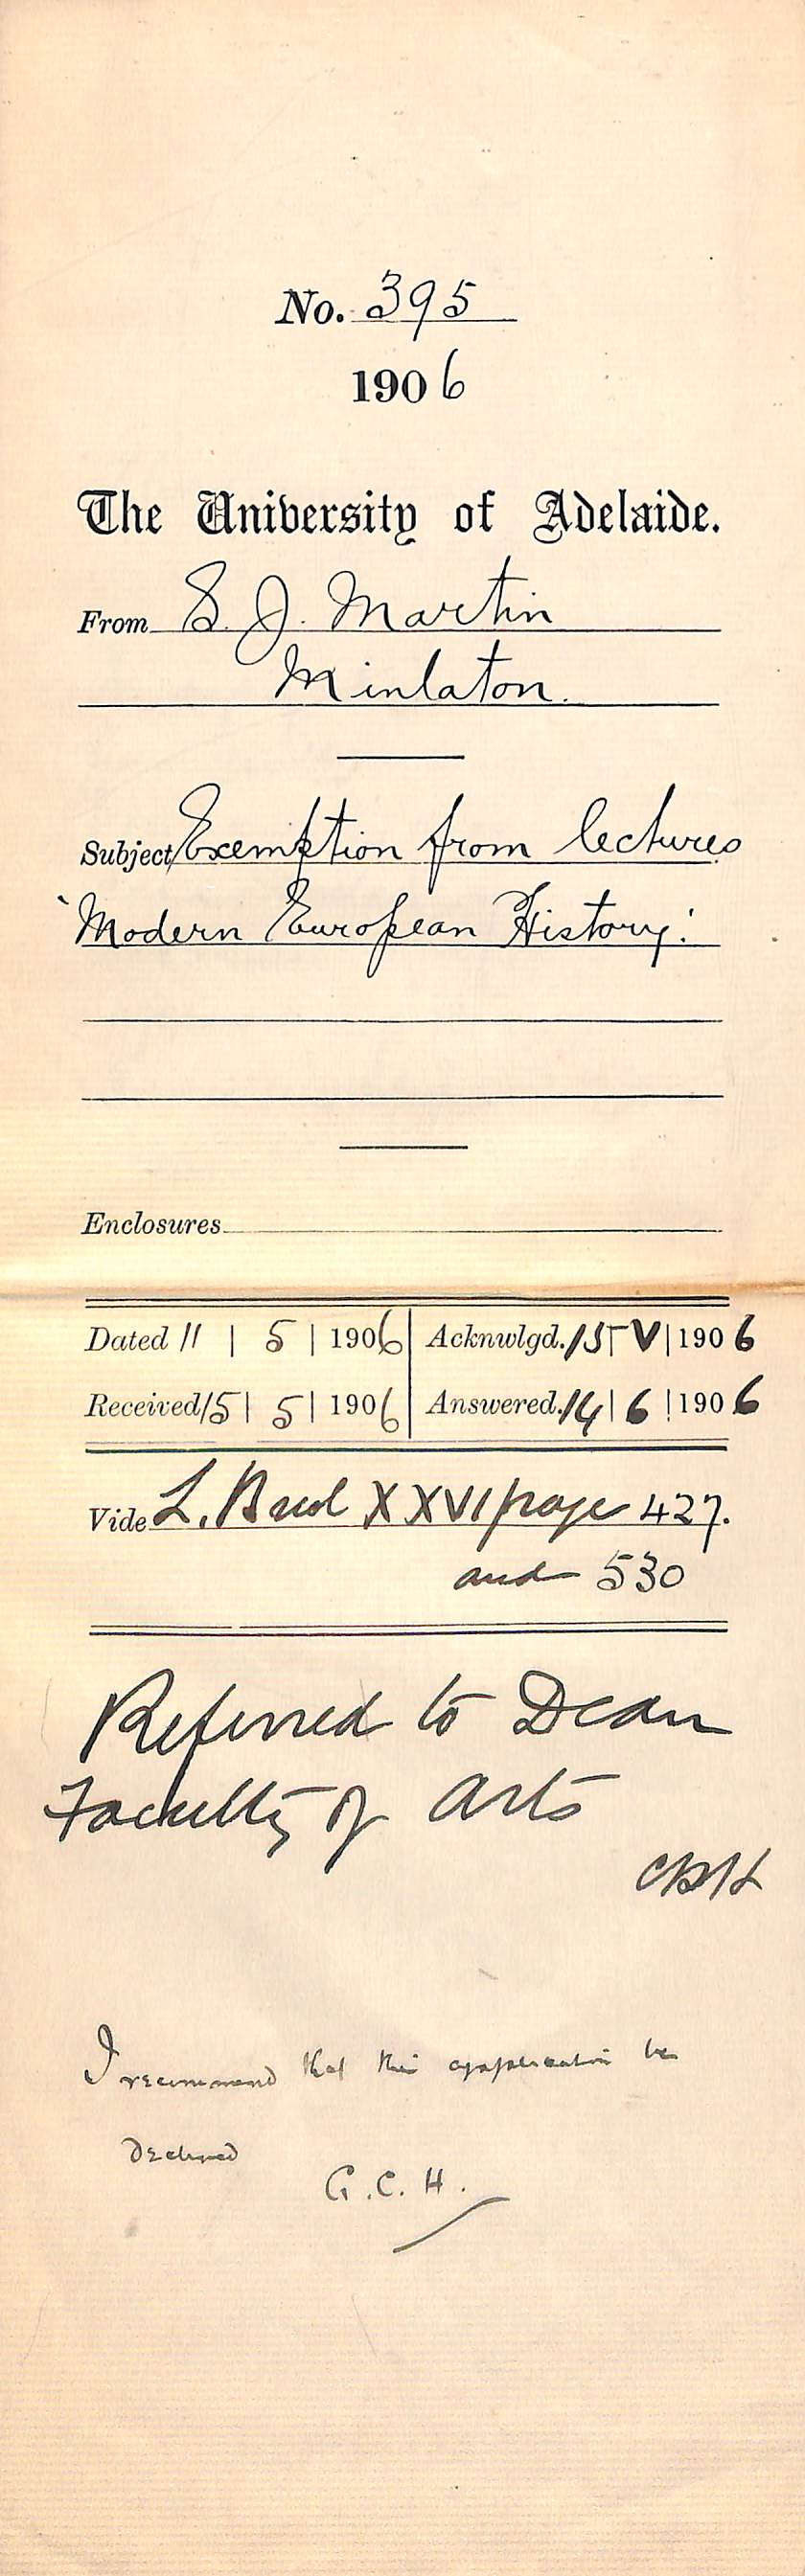 No. 395
1906
The University of Adelaide.
From S. J. Martin
Minlaton.
Subject Exemption from lectures
'Modern European History'.
Enclosures
Dated 11 | 5 | 1906 Acknwlgd. 15 | V | 1906
Received 15 | 5 | 1906 Answered. 14 | 6 | 1906
Vide L. Book XXVI page 427.
and 530
Referred to Dean
Faculty of Arts
I recommend that this application be
declined
G.C.H.